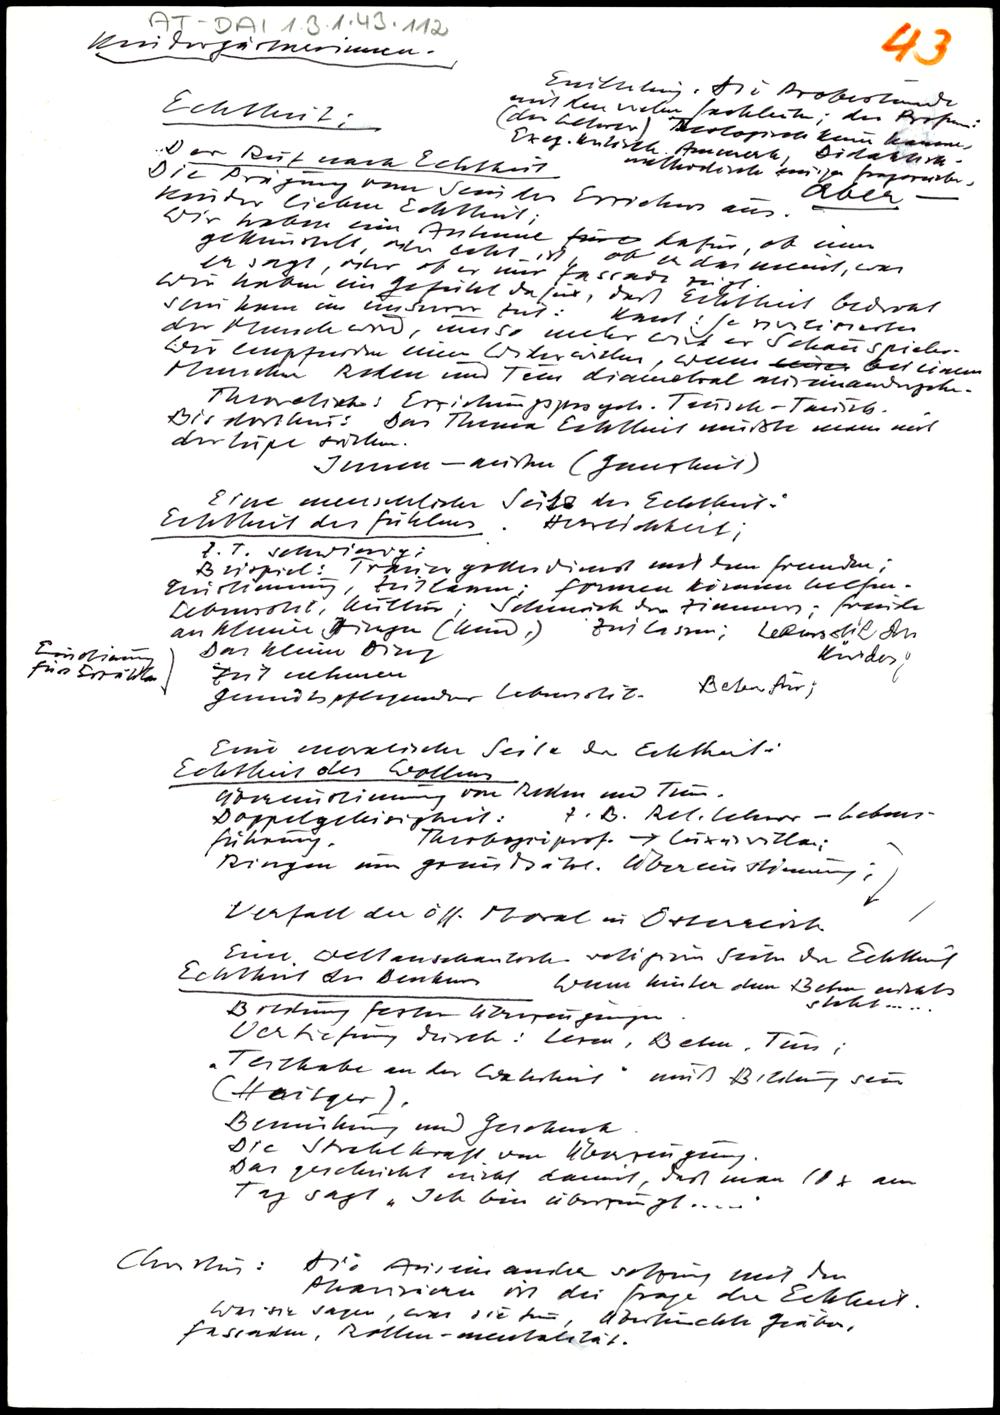 AT-DAI 1.3.1.43.112
43
Kindergärtnerinnen.
Einleitung. Die Probestunde
mit den vielen Fachleuten; der Profess:
(der Lehrer) Theologisch kein Kanon,
Exeg. kritisch. Anmerk, Didaktisch-
methodisch einige Fragezeichen,
Aber —
Echtheit:
Der Ruf nach Echtheit
Die Prägung vom Sein des Erziehers aus.
Kinder lieben Echtheit:
Wir haben eine Antenne für dafür, ob einer
gekünstelt, oder echt ist, ob er das meint, was
er sagt, oder ob er nur Fassade zeigt.
Wir haben ein Gefühl dafür, daß Echtheit bedroht
sein kann in unserer Zeit: Kant: Je zivilisierter
der Mensch wird, umso mehr wird er Schauspieler.
Wir empfinden einen Widerwillen, wenn einer bei einem
Menschen Reden und Tun diametral auseinandergehn.
Theoretisch: Erziehungspsych. Tausch-Tausch.
Bis dorthin: Das Thema Echtheit müßte man mit
der Lupe suchen.
Innen — außen (Ganzheit)
Eine menschliche Seite der Echtheit:
Echtheit des Fühlens. Herzlichkeit;
z. T. schwierig:
Beispiel: Trauergottesdienst mit dem Fremden;
Einstimmung, Zeit lassen; Formen können helfen.
Lebensstil, Kultur; Schmuck der Zimmer; Freude
an kleinen Dingen (Kind,) Zeit lassen; Lebensstil des
Kindes;
Das kleine Ding
Einstimmung
fürs Erzählen
Zeit nehmen
Gemütspflegender Lebensstil. Beten für;
Eine moralische Seite der Echtheit:
Echtheit des Wollens
Übereinstimmung von Reden und Tun.
Doppelgeleisigkeit: z. B. Rel. Lehrer – Lebens-
führung. Theologieprof. → Luxusvilla;
Ringen um grundsätzl. Übereinstimmung;
Verfall der öff. Moral in Österreich
Eine weltanschaulich-religiöse Seite der Echtheit
Echtheit des Denkens Wenn hinter dem Beten nichts
steht.....
Bildung fester Überzeugungen.
Vertiefung durch: Lesen, Beten, Tun;
"Teilhabe an der Wahrheit" muß Bildung sein
(Haitger).
Bemühung und Geschenk.
Die Strahlkraft von Überzeugung.
Das geschieht nicht damit, daß man 10 x am
Tag sagt "Ich bin überzeugt....."
Christus: Die Auseinandersetzung mit den
Pharisäern ist die Frage der Echtheit.
Was sie sagen, was sie tun, Übertünchte Gräber,
Fassaden, Rollen-mentalität.